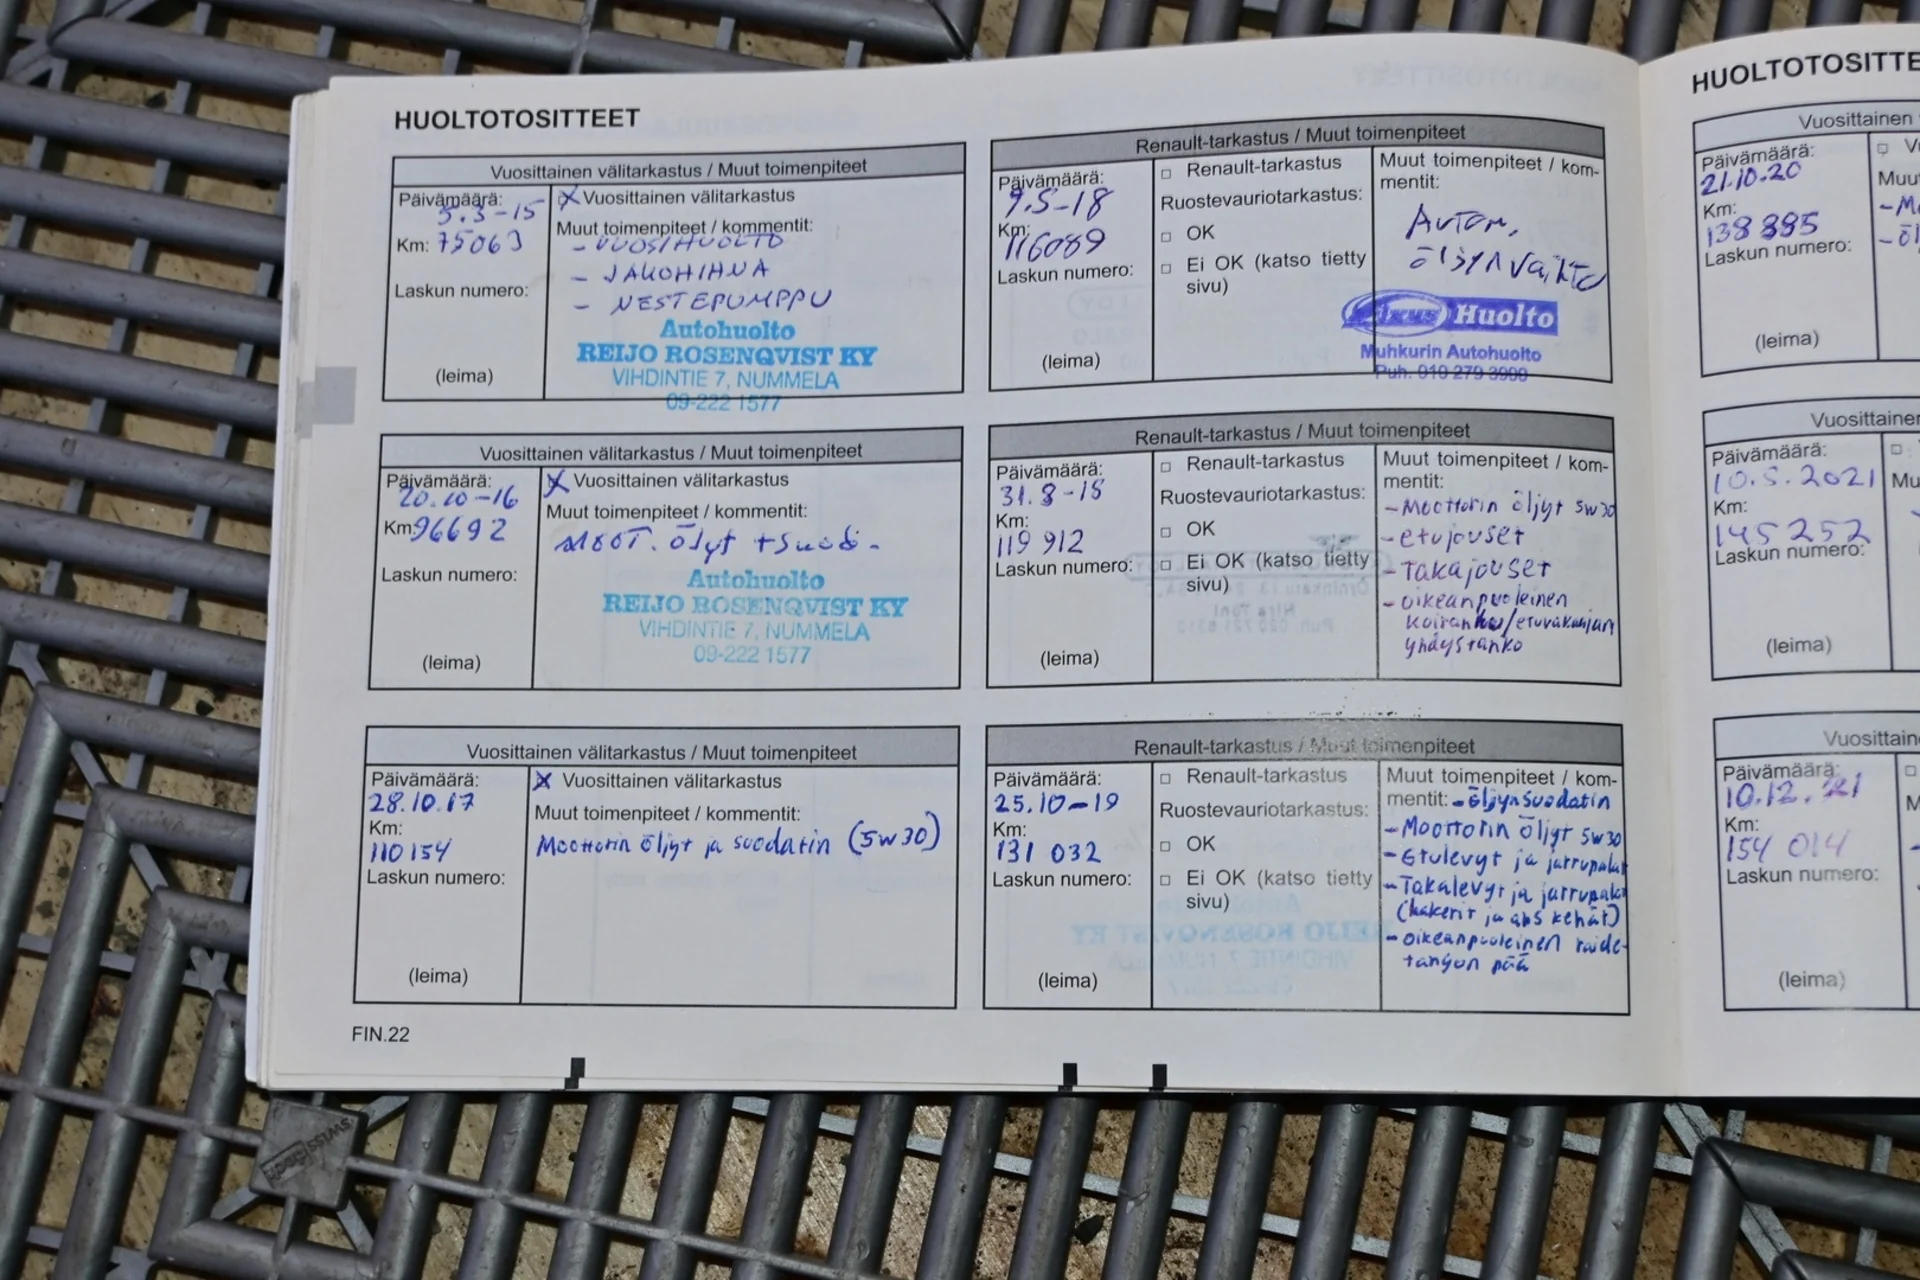 HUOLTOTOSITTEET
Vuosittainen välitarkastus / Muut toimenpiteet
Päivämäärä:
5.3-15
Km: 75063
Laskun numero:
(leima)
X Vuosittainen välitarkastus
Muut toimenpiteet / kommentit:
- VUOSIHUOLTO
- JAKOHIHNA
- NESTEPUMPPU
Autohuolto
REIJO ROSENQVIST KY
VIHDINTIE 7, NUMMELA
09-222 1577
Vuosittainen välitarkastus / Muut toimenpiteet
Päivämäärä:
20.10-16
Km: 96692
Laskun numero:
(leima)
X Vuosittainen välitarkastus
Muut toimenpiteet / kommentit:
MOOT. öljyt + suod.
Autohuolto
REIJO ROSENQVIST KY
VIHDINTIE 7, NUMMELA
09-222 1577
Vuosittainen välitarkastus / Muut toimenpiteet
Päivämäärä:
28.10.17
Km:
110154
Laskun numero:
(leima)
X Vuosittainen välitarkastus
Muut toimenpiteet / kommentit:
Moottorin öljyt ja suodatin (5w30)
FIN.22
Renault-tarkastus / Muut toimenpiteet
Päivämäärä:
9.5-18
Km:
116089
Laskun numero:
(leima)
Renault-tarkastus
Ruostevauriotarkastus:
OK
Ei OK (katso tietty
sivu)
Muut toimenpiteet / kom-
mentit:
Autom.
öljynvaihto
Huolto
Muhkurin Autohuolto
Puh. 010 279 3900
Renault-tarkastus / Muut toimenpiteet
Päivämäärä:
31.8-18
Km:
119 912
Laskun numero:
(leima)
Renault-tarkastus
Ruostevauriotarkastus:
OK
Ei OK (katso tietty
sivu)
Muut toimenpiteet / kom-
mentit:
- Moottorin öljyt 5w30
- etujouset
- Takajouset
- oikeanpuoleinen
yhdystanko
Renault-tarkastus / Muut toimenpiteet
Päivämäärä:
25.10-19
Km:
131 032
Laskun numero:
(leima)
Renault-tarkastus
Ruostevauriotarkastus:
OK
Ei OK (katso tietty
sivu)
Muut toimenpiteet / kom-
mentit: - öljynsuodatin
- Moottorin öljyt 5w30
- Etulevyt ja jarrupalat
- Takalevyt ja jarrupalat
(laakerit ja abs kehät)
- oikeanpuoleinen raide-
tangon pää
HUOLTOTOSITTE
Vuosittainen
Päivämäärä:
21.10.20
Km:
138 885
Laskun numero:
(leima)
Muut
Vuosittainen
Päivämäärä:
10.5.2021
Km:
145 252
Laskun numero:
(leima)
Mu
Vuosittain
Päivämäärä:
10.12.21
Km:
154 014
Laskun numero:
(leima)
swissdeck